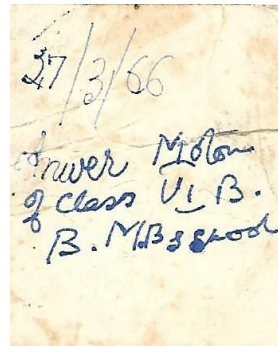 27/3/66
Anwer Motan
of Class VI B.
B.M.B School